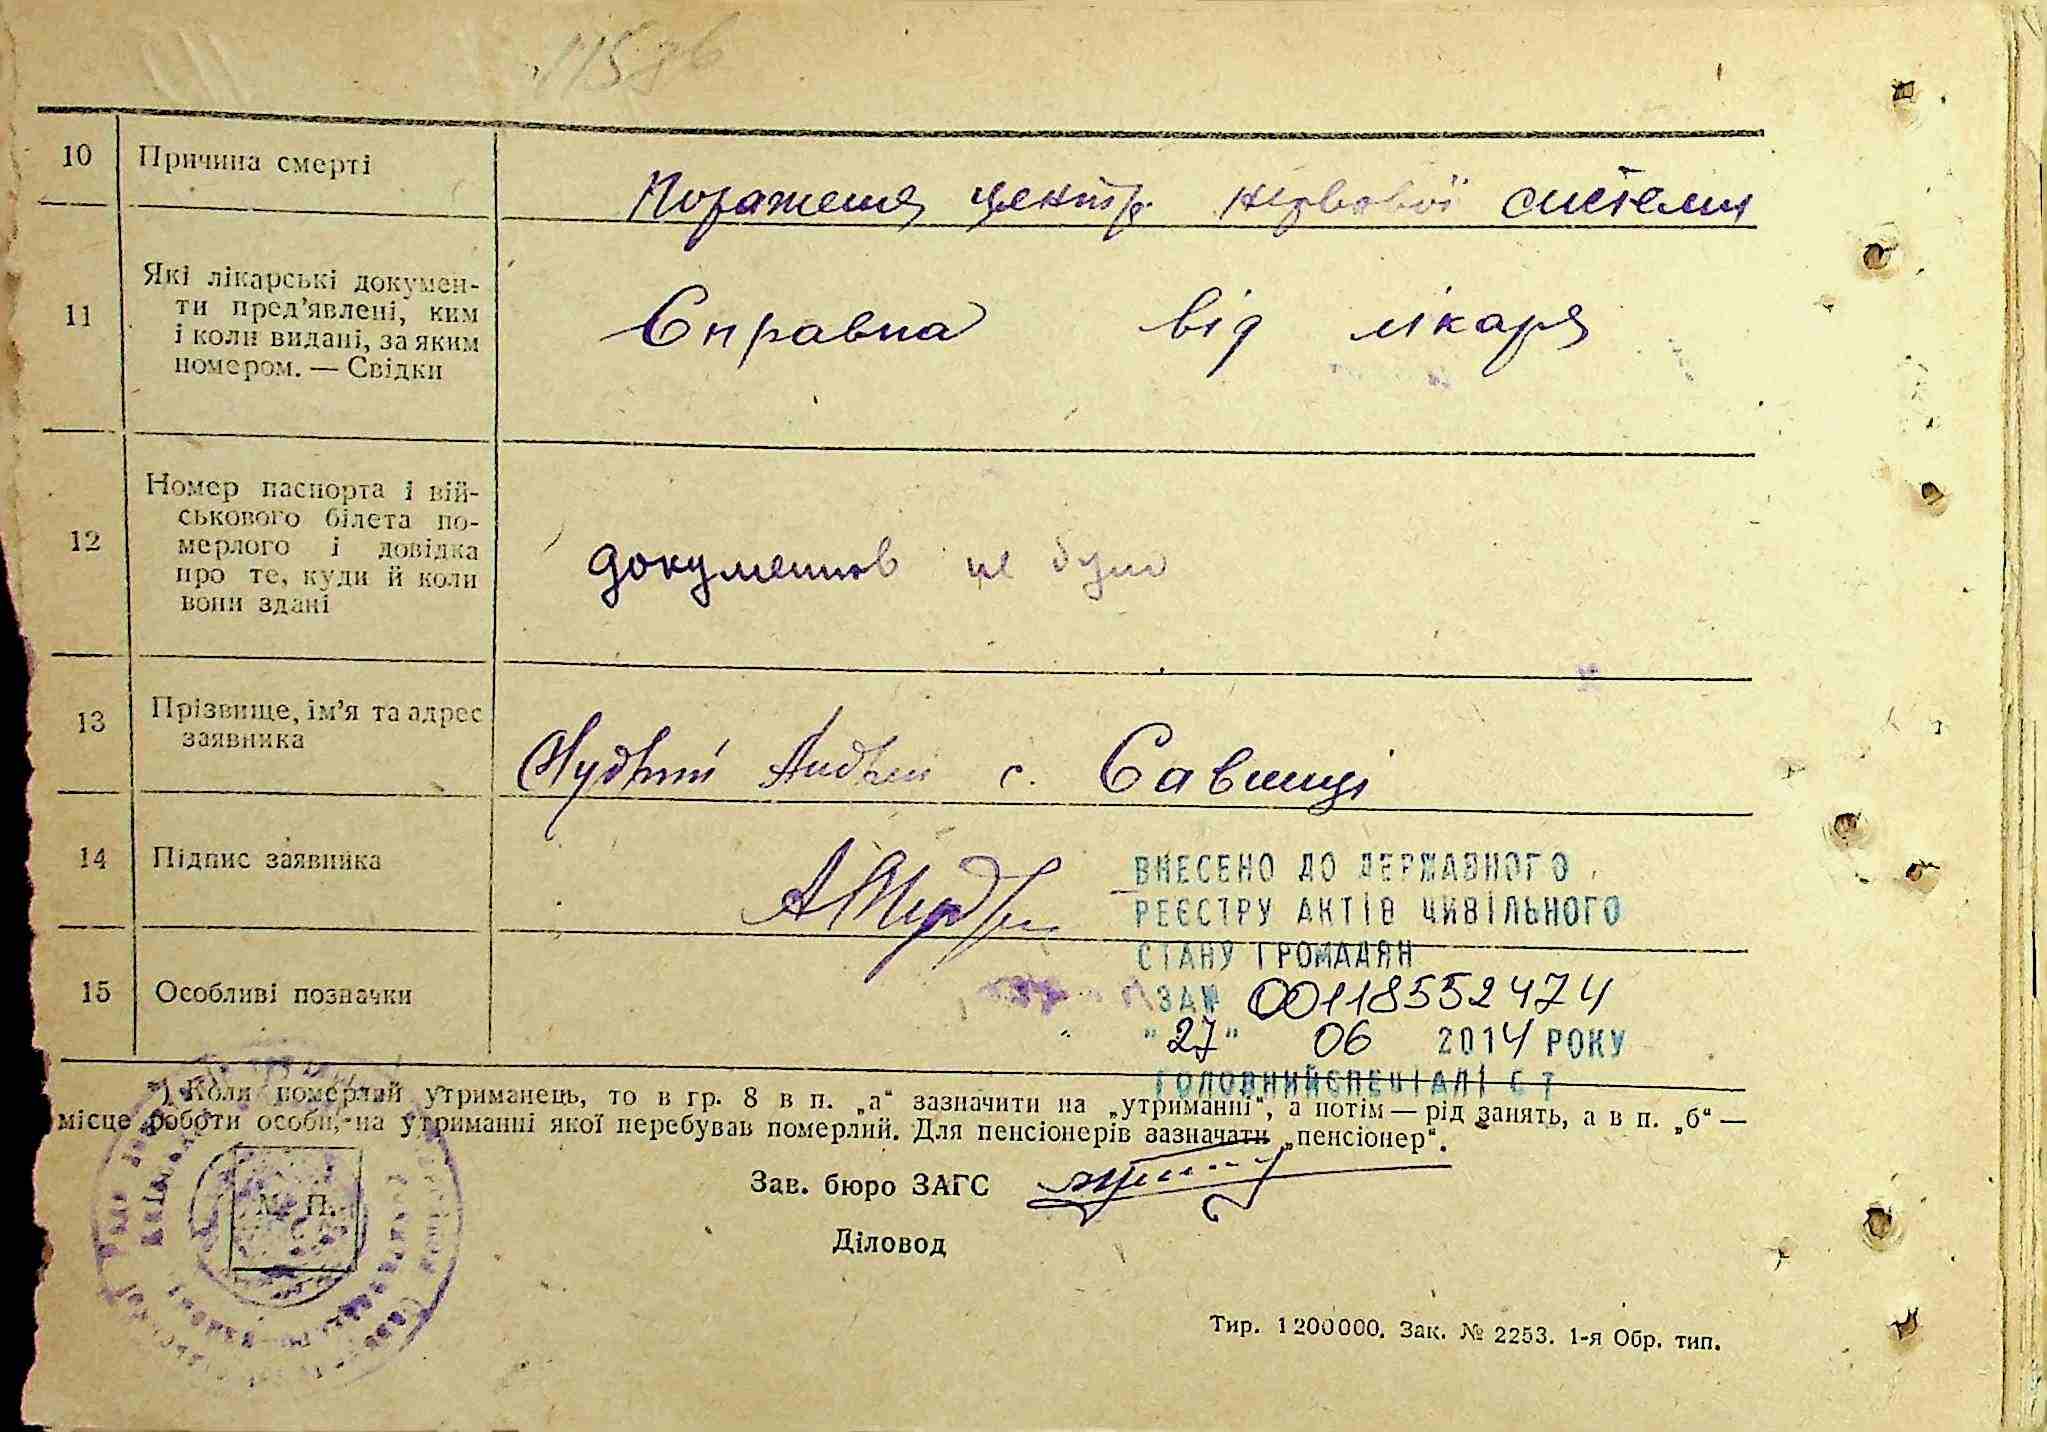 10
Причина смерті
Пораженя центр. нервової системи
11
Які лікарські докумен-
ти пред'явлені, ким
і коли видані, за яким
номером. — Свідки
Справка від лікаря
12
Номер паспорта і вій-
ськового білета по-
мерлого і довідка
про те, куди й коли
вони здані
документов не було
13
Прізвище, ім'я та адрес
заявника
Андрій с. Савинці
14
Підпис заявника
15
Особливі позначки
ВНЕСЕНО ДО ДЕРЖАВНОГО
РЕЄСТРУ АКТІВ ЦИВІЛЬНОГО
СТАНУ ГРОМАДЯН
ЗА№ 00118552474
"27" 06 2014 РОКУ
ГОЛОВНИЙ СПЕЦІАЛІСТ
*) Коли померлий утриманець, то в гр. 8 в п. „а“ зазначити на „утриманні“, а потім — рід занять, а в п. „б“ —
місце роботи особи, на утриманні якої перебував померлий. Для пенсіонерів зазначати „пенсіонер“.
Зав. бюро ЗАГС
М. П.
Діловод
Тир. 1200000. Зак. № 2253. 1-я Обр. тип.